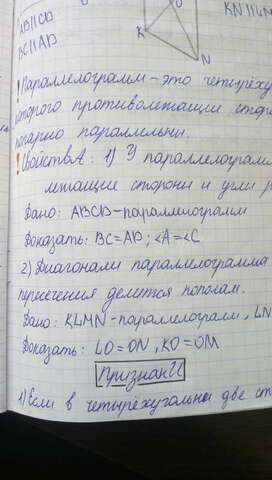 AB||CD
BC||AD
K
N
KN||LM
! Параллелограмм - это четырёху
которого противолежащие сторо
попарно параллельны.
! СвойствА: 1) У параллелограмм
лежащие стороны и углы р
Дано: ABCD-параллелограмм
Доказать: BC=AD; <A=<C
2) Диагонали параллелограмма
пересечения делится пополам.
Дано: KLMN-параллелограмм, LN
Доказать: LO=ON, KO=OM
ПризнакИ
1) Если в четырёхугольнике две ст